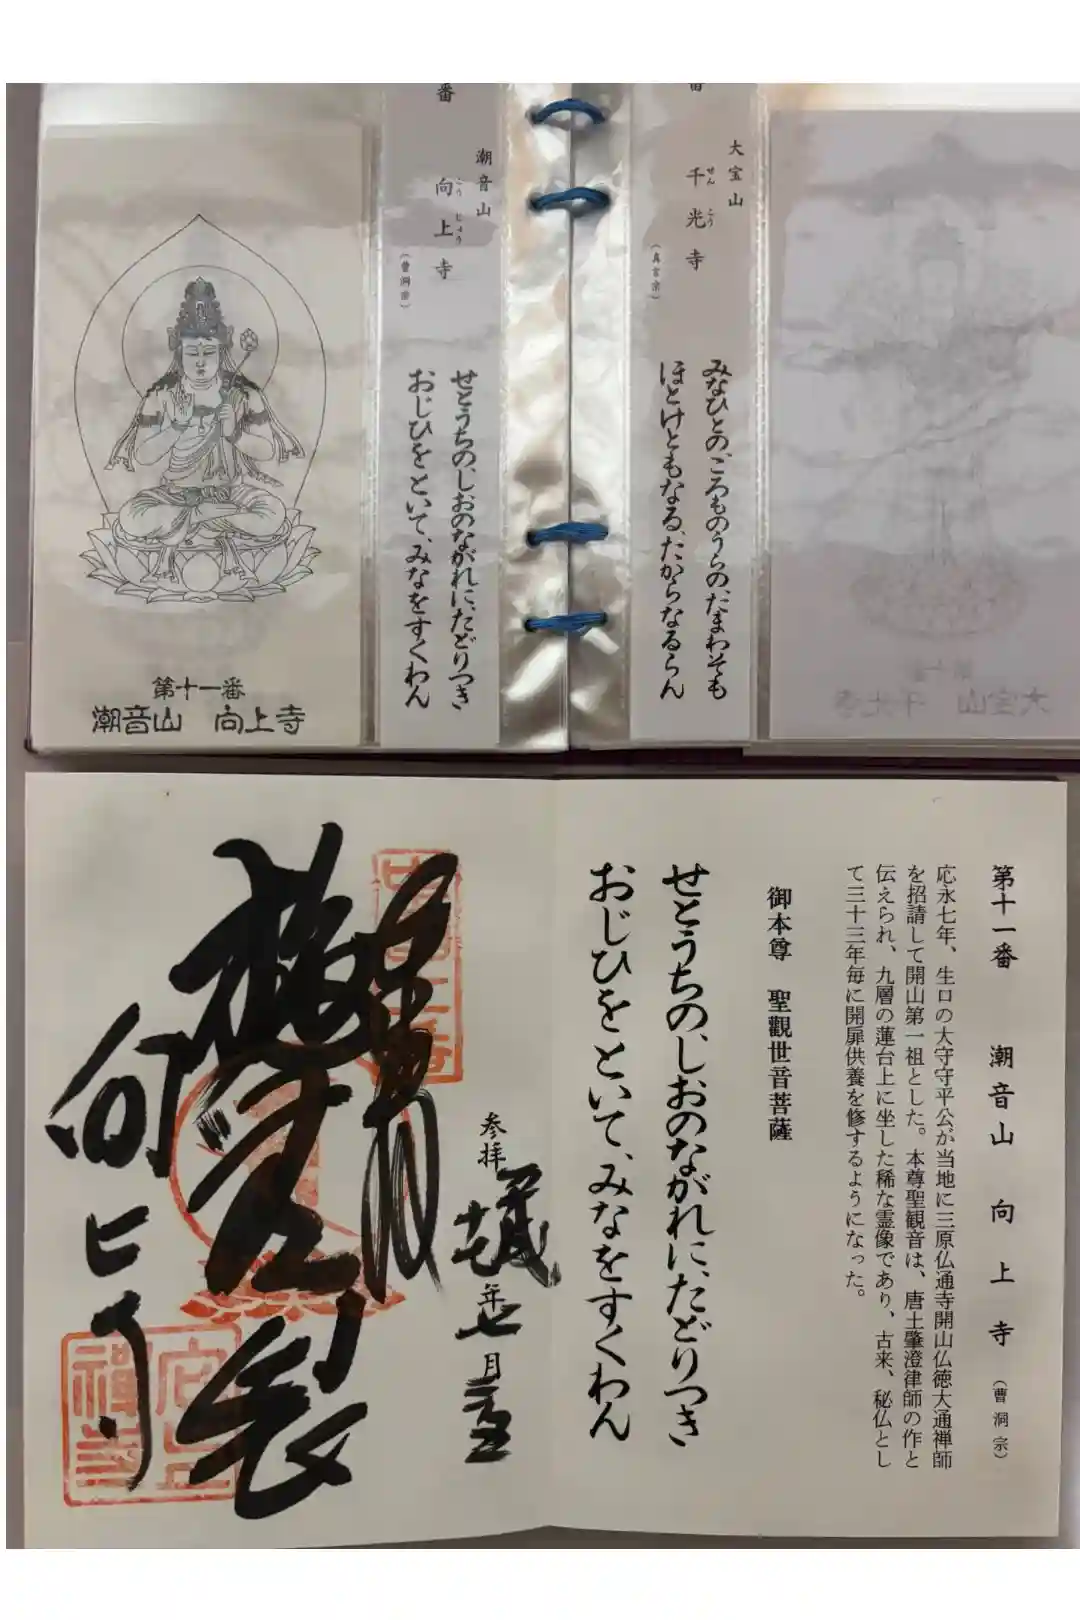 番
潮音山
向上寺
こう じょう
（曹洞宗）
せとうちの、しおのながれに、たどりつき
おじひをといて、みなをすくわん
第十一番
潮音山 向上寺
番
大宝山
千光寺
せん こう
（真言宗）
みなひとのころものうらのたまわそも
ほとけともなる、たからなるらん
大宝山 千光寺
第十一番 潮音山 向上寺 （曹洞宗）
応永七年、生口の大守守平公が当地に三原仏通寺開山仏徳大通禅師
を招請して開山第一祖とした。本尊聖観音は、唐土肇澄律師の作と
伝えられ、九層の蓮台上に坐した稀な霊像であり、古来、秘仏とし
て三十三年毎に開扉供養を修するようになった。
御本尊 聖觀世音菩薩
せとうちの、しおのながれに、たどりつき
おじひをといて、みなをすくわん
参拝
年 七 月
向上寺